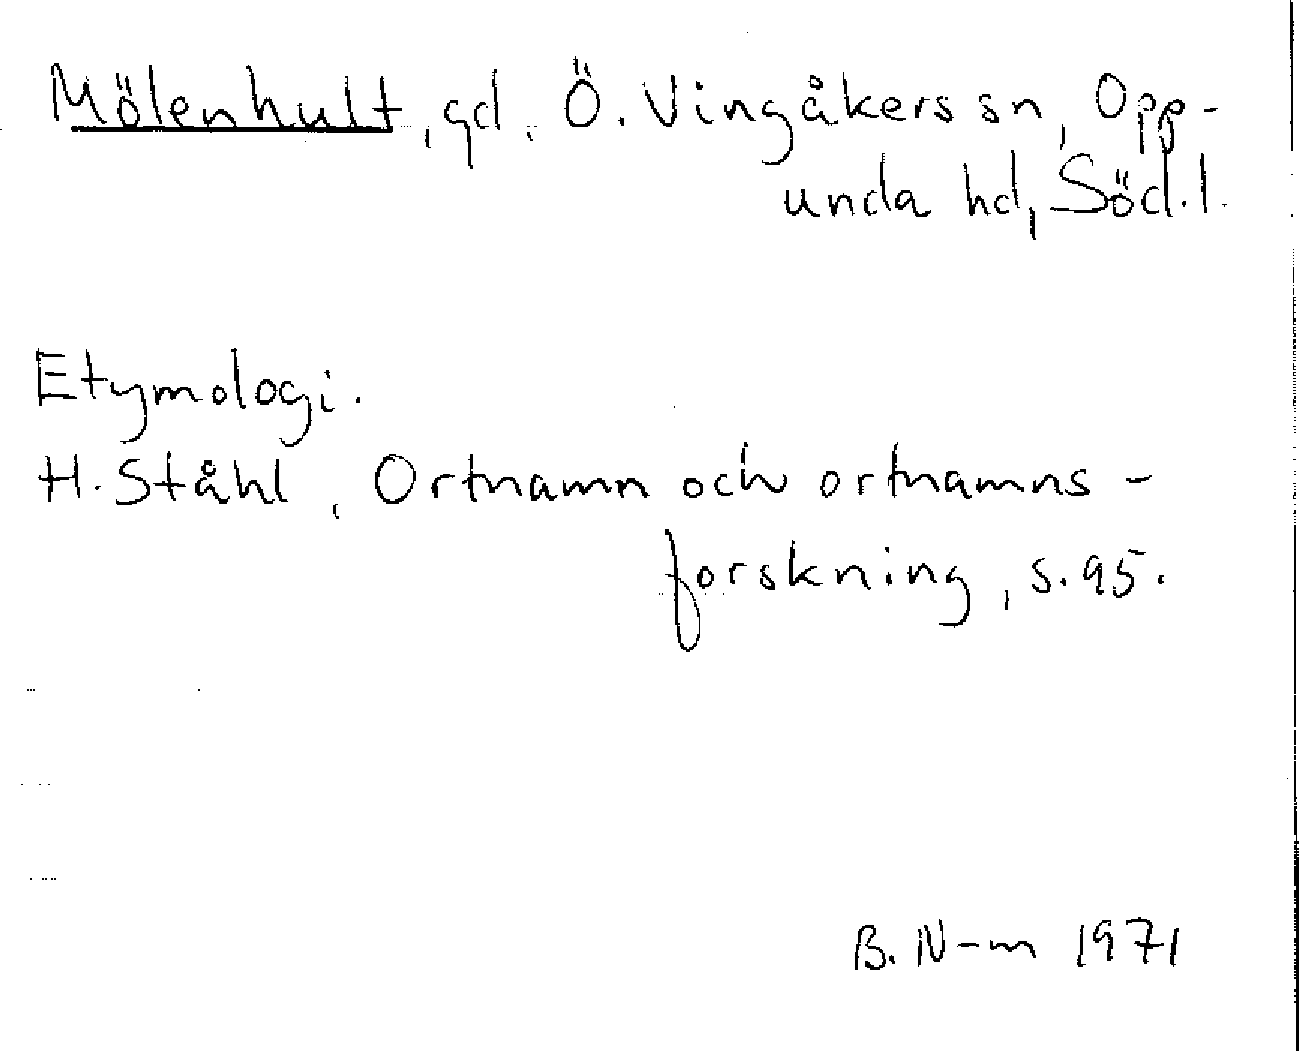 Mölenhult, gd, Ö. Vingåkers sn, Opp-
unda hd, Söd.l.
Etymologi.
H. Ståhl, Ortnamn och ortnamns-
forskning, s. 95.
B. N-m 1971